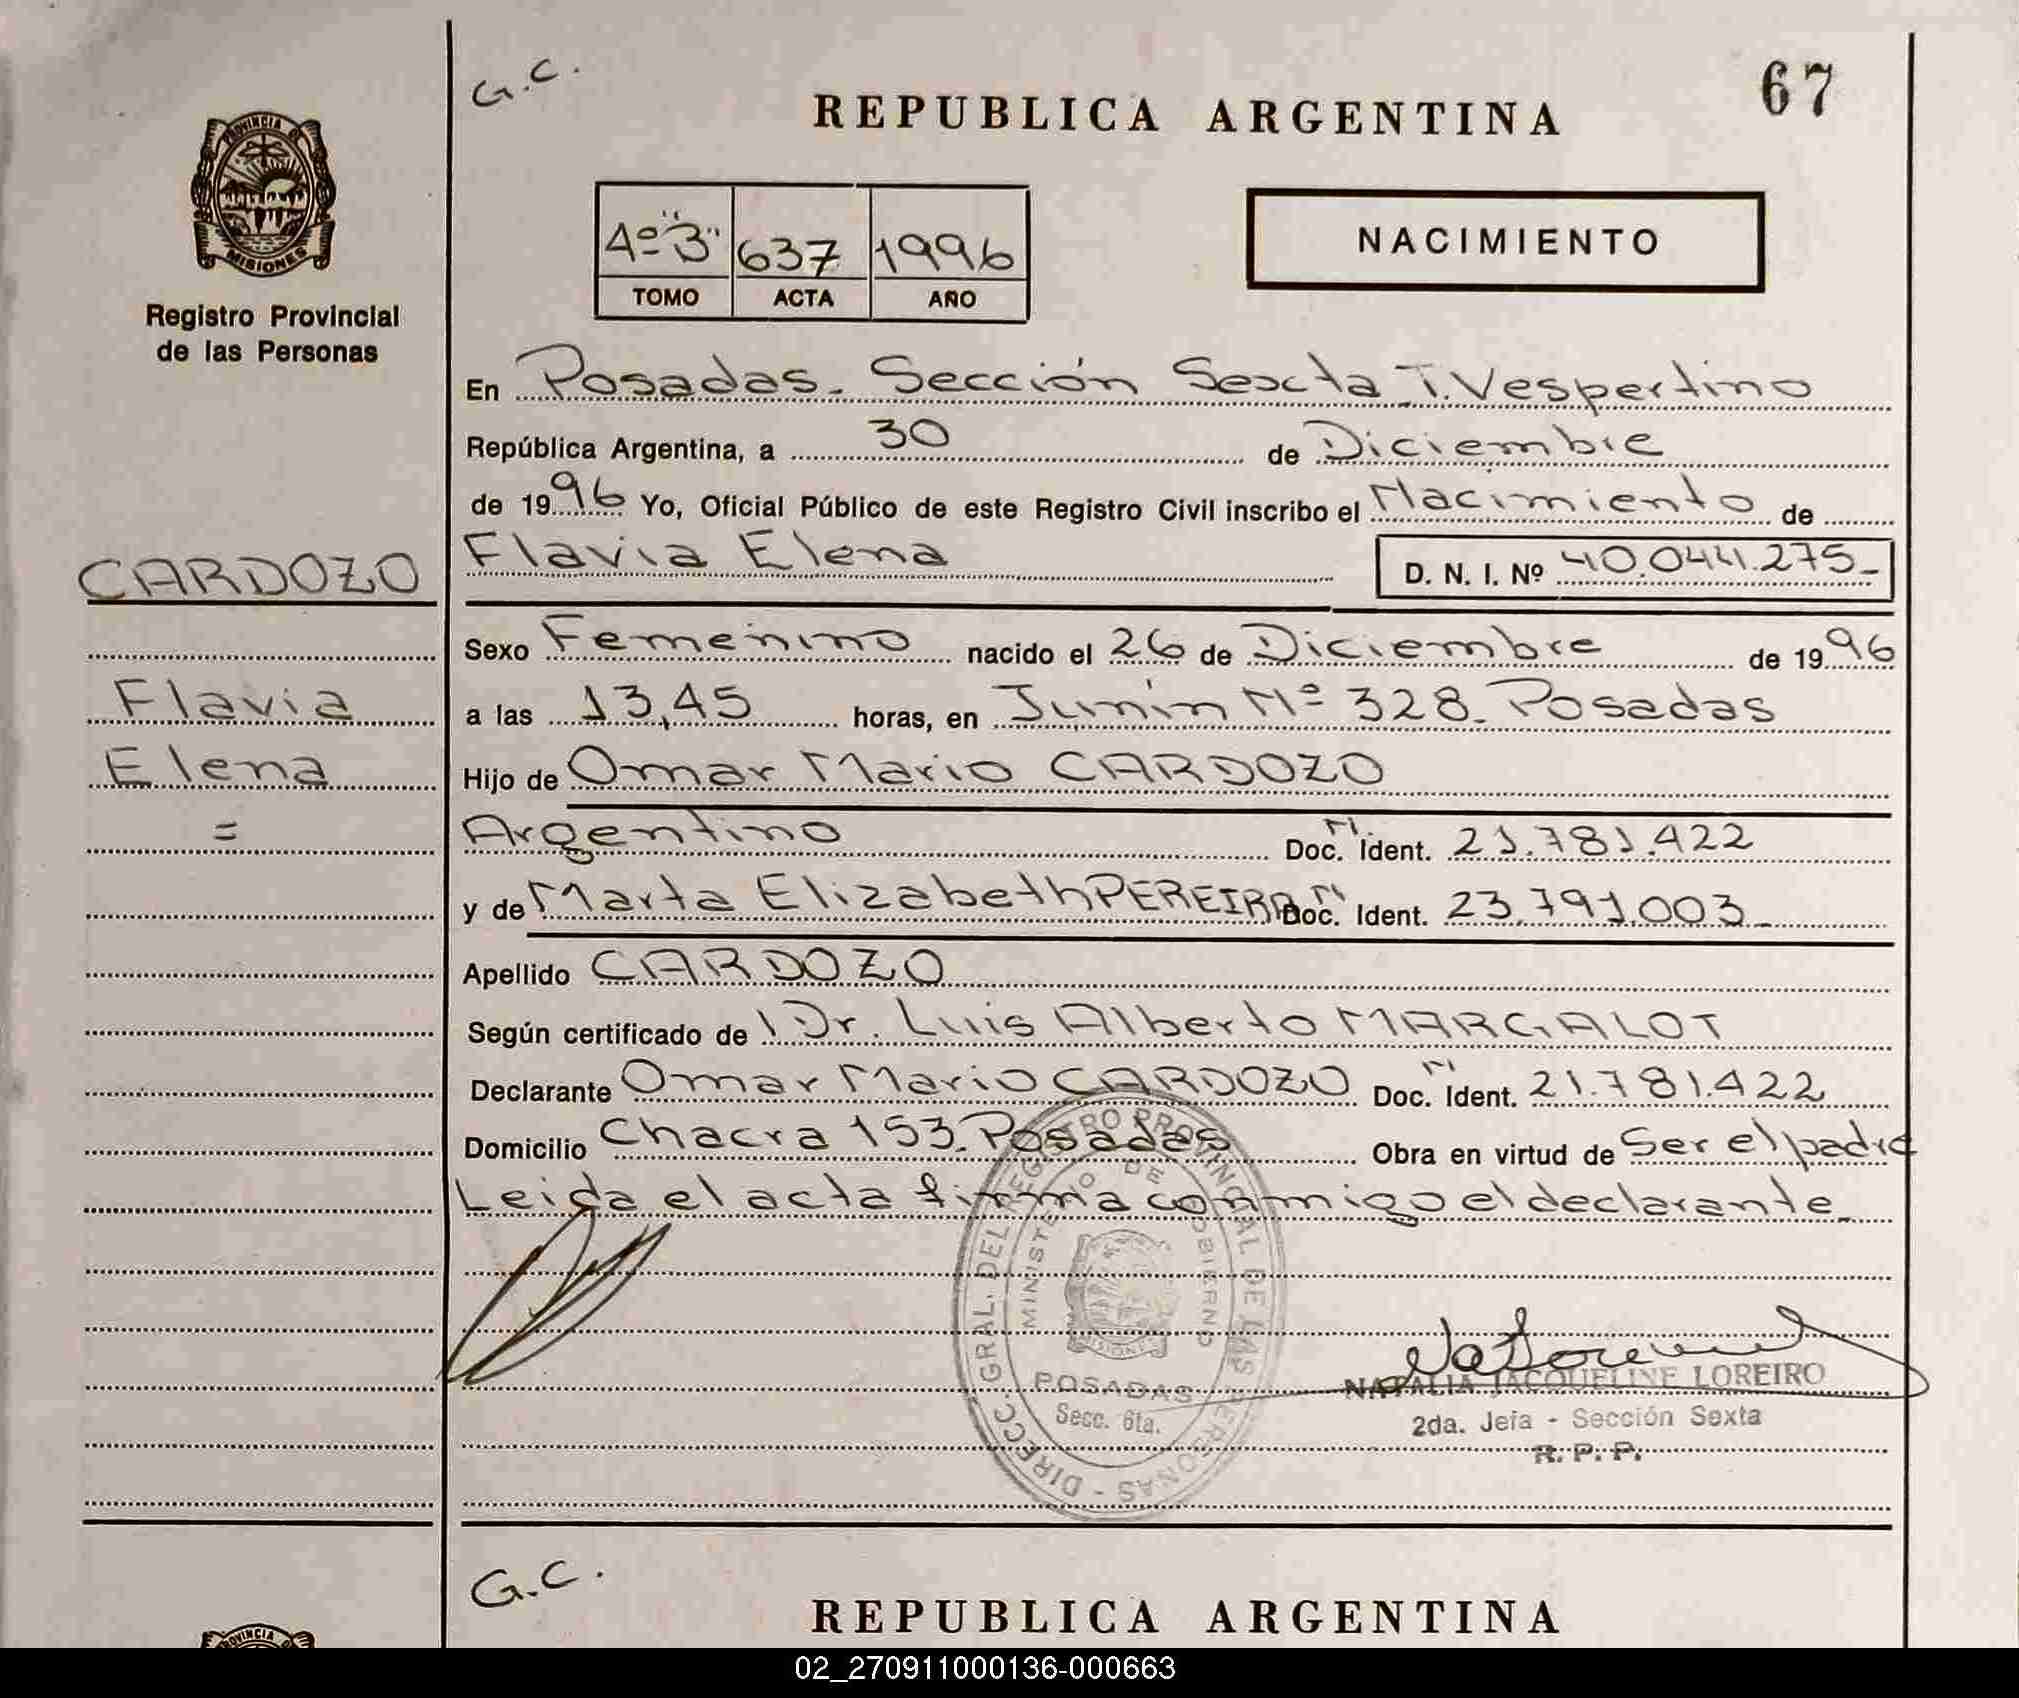 G.C.
REPUBLICA ARGENTINA
67
PROVINCIA DE
MISIONES
Registro Provincial
de las Personas
4º "3" 637 1996
TOMO ACTA AÑO
NACIMIENTO
En Posadas. Sección Sexta T. Vespertino
República Argentina, a 30 de Diciembre
de 1996 Yo, Oficial Público de este Registro Civil inscribo el Nacimiento de
CARDOZO
Flavia Elena D. N. I. Nº 40.044.275_
Sexo Femenino nacido el 26 de Diciembre de 1996
Flavia
a las 13,45 horas, en Junín Nº 328. Posadas
Elena
Hijo de Omar Mario CARDOZO
=
Argentino Doc. N. Ident. 21.781.422
y de Marta Elizabeth PEREIRA Doc. N. Ident. 23.791.003_
Apellido CARDOZO
Según certificado de Dr. Luis Alberto MARGALOT
Declarante Omar Mario CARDOZO Doc. N. Ident. 21.781.422
Domicilio Chacra 153. Posadas Obra en virtud de Ser el padre
Leida el acta firma conmigo el declarante_
DIRECC. GRAL. DEL REGISTRO PROVINCIAL DE LAS PERSONAS -
MINISTERIO DE GOBIERNO
MISIONES
POSADAS
Secc. 6ta.
NATALIA JACQUELINE LOREIRO
2da. Jefa - Sección Sexta
R. P. P.
G.C.
REPUBLICA ARGENTINA
PROVINCIA
02_270911000136-000663